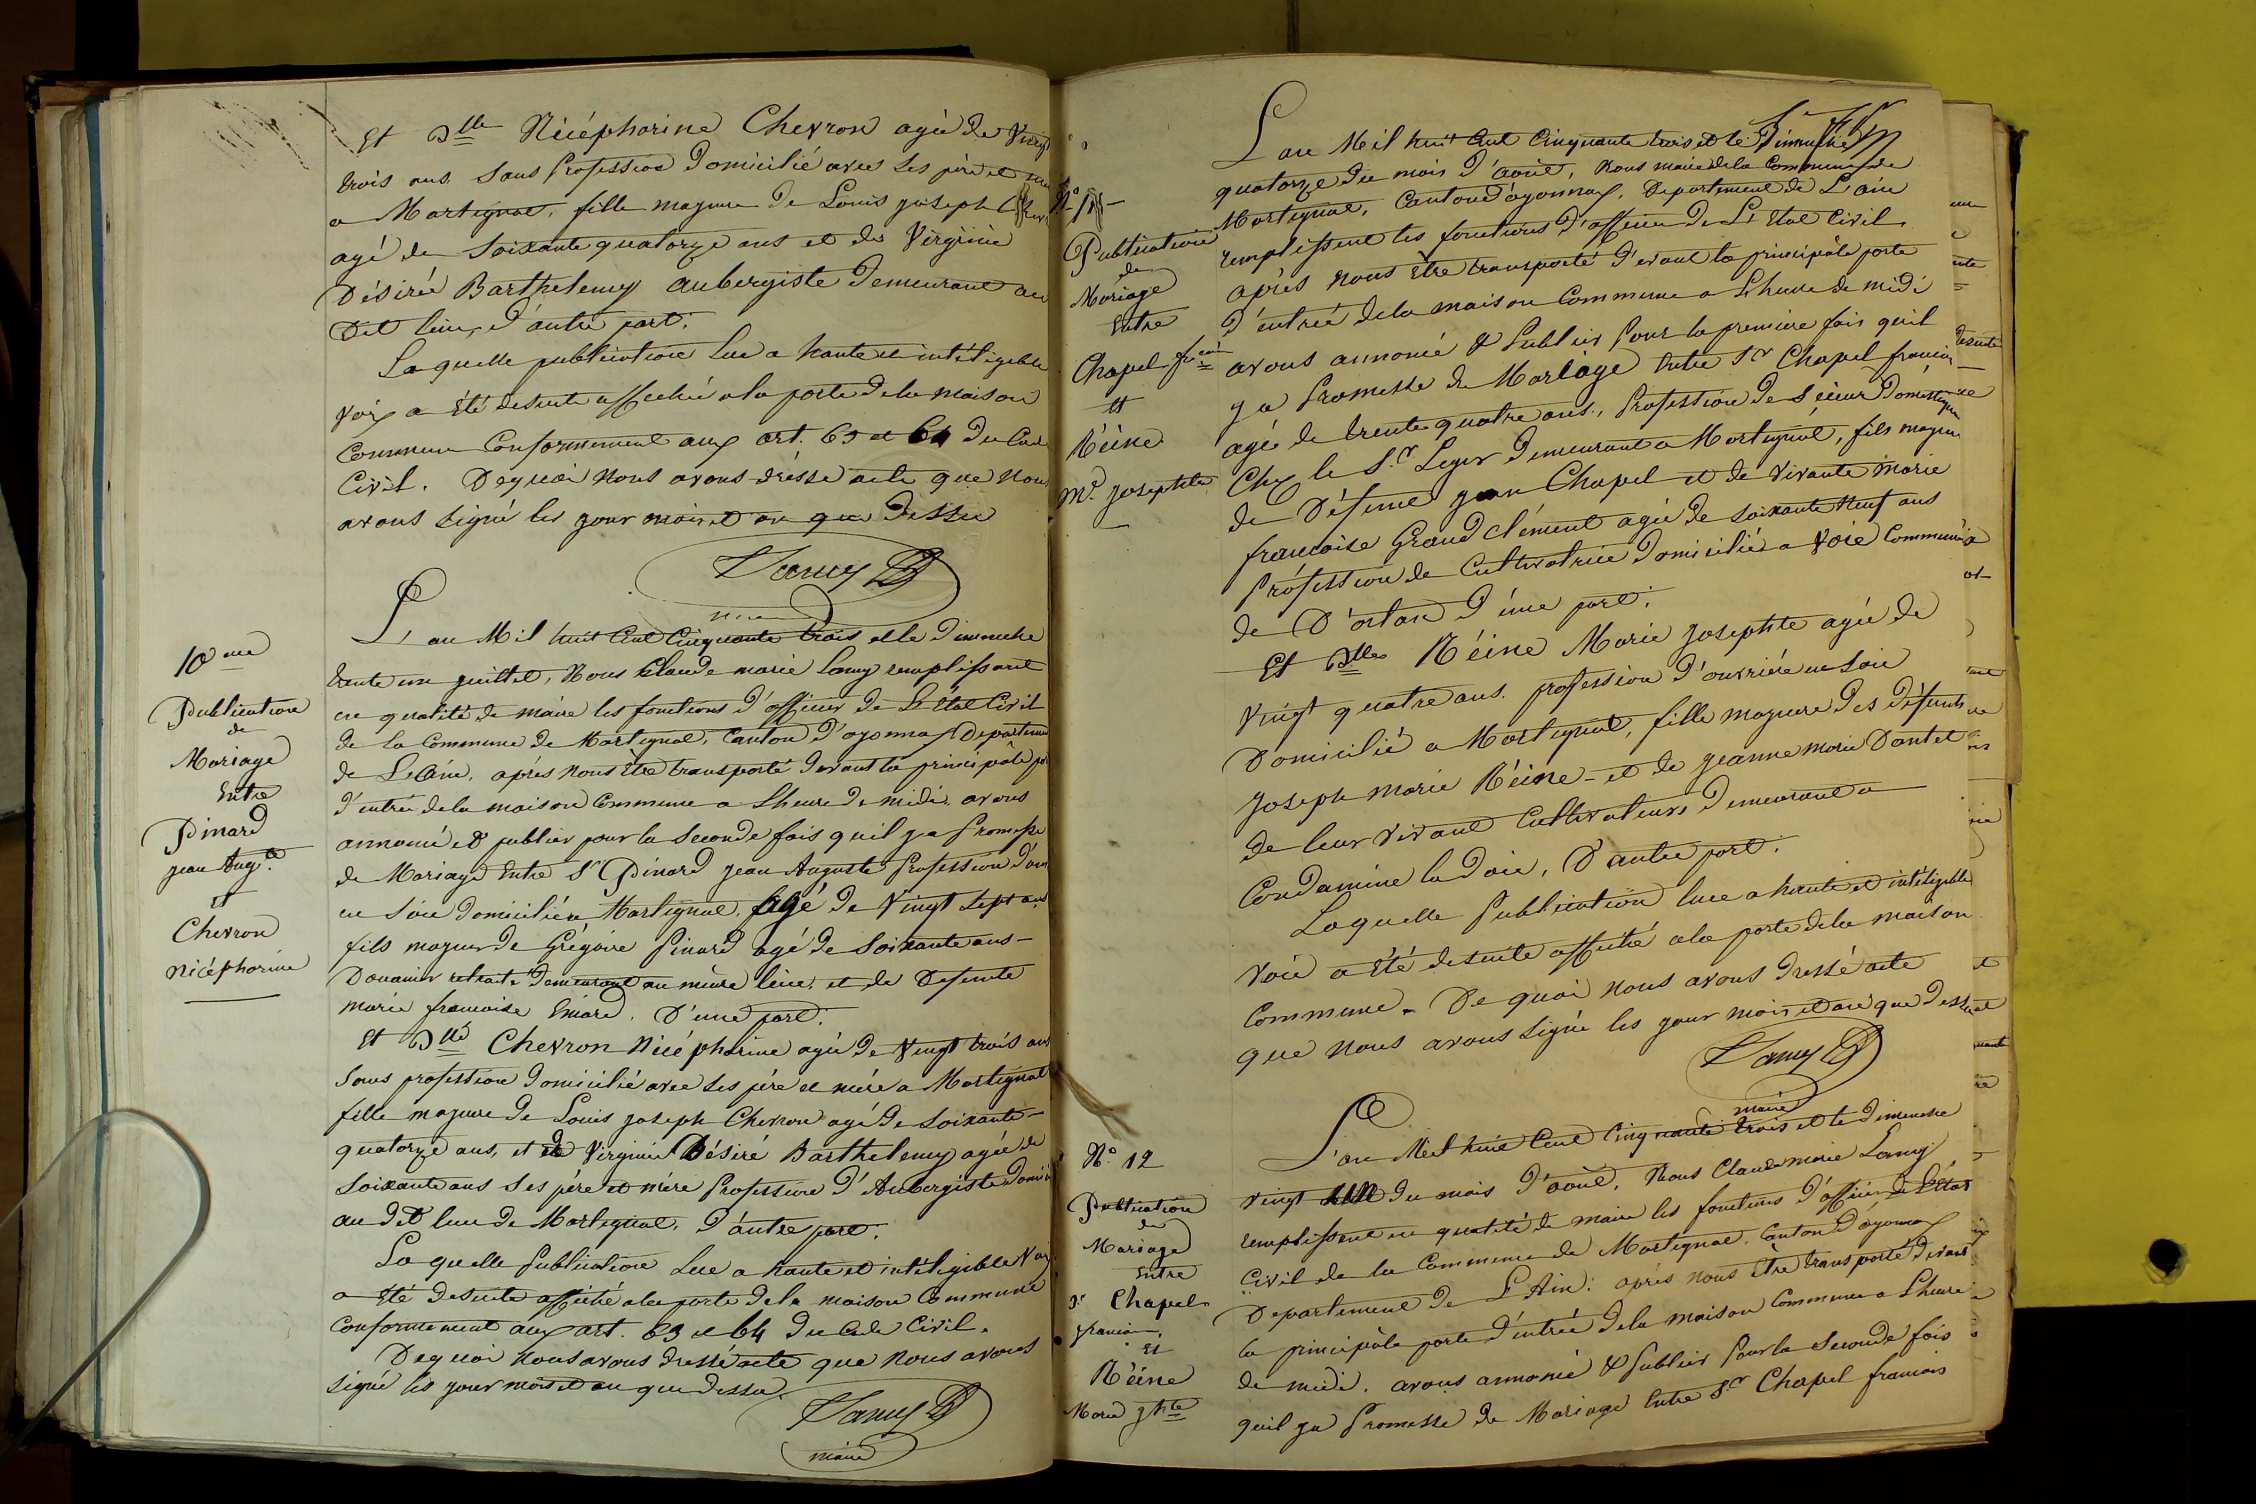 Et Dlle Nicéphorine Chevron agée de Vingt
trois ans sans Profession Domicilié avec ses père et
a Martignat, fille majeure de Louis joseph
agé de Soixante quatorze ans et de Virginie
Désirée Barthelemy aubergiste Demeurant au
Dit lieu, D'autre part.
Laquelle publication lue a haute et intéligible
voix a été desuite affichée a la porte de la maison
Commune Conformement aux art. 63 et 64 Du Code
Civil. De quoi Nous avons dressé acte que Nous
avons signé les jour mois et an que Dessus
Lamy
maire
10me
Publication
de
Mariage
Entre
Pinard
jean Augte
et
Chevron
Nicéphorine
L'an Mil huit Cent Cinquante trois et le Dimanche
trente un juillet, Nous Claude marie Lamy remplissant
en qualité de maire les fonctions d'officier de L'Etat Civil
de la Commune de Martignat, Canton D'oyonnax Departement
de L'ain, après Nous être transporté Devant la principale
d'entrée de la maison Commune a L'heure De midi, avons
annoncé et publier pour la Seconde fois qu'il y a Promesse
de Mariage Entre Sr Pinard jean Auguste Profession
en Soie Domicilié a Martignat, agé de Vingt Sept ans
fils majeur de Grégoire Pinard agé de Soixante ans
Douanier retraité Demeurant au même lieu, et de Defunte
marie francoise Emard. D'une part.
Et Dlle Chevron Nicéphorine agée de Vingt trois ans
Sans profession Domicilié avec ses père et mère a Martignat
fille majeure de Louis joseph Chevron agé de Soixante
quatorze ans, et de Virginie Désiré Barthelemy agée de
Soixante ans Ses père et mère Profession d'Aubergiste
au dit lieu de Martignat, D'autre part.
Laquelle Publication Lue a haute et intéligible Voix
a été Desuite affiché a la porte de la maison Commune
Conformement aux art. 63 et 64 du Code Civil.
De quoi Nous avons dressé acte que Nous avons
signé les jour mois et an que dessus.
Lamy
maire
Publication
de
Mariage
Entre
Chapel
et
Réine
Mie Josephte
L'an Mil huit Cent Cinquante trois et le Dimanche
quatorze du mois D'août, Nous maire de la Commune de
Martignat, Canton D'oyonnax, Departement de L'ain
remplissant les fonctions d'officier De L'Etat Civil
après Nous être transporté Devant la principale porte
D'entrée de la maison Commune a L'heure de midi
avons annoncé & Publier Pour la première fois qu'il
y a Promesse de Mariage Entre Sr Chapel francois
agé de trente quatre ans, Profession de Scieur Domestique
Chez le Sr Leger Demeurant a Martignat, fils majeur
de Défunt jean Chapel et de Vivante Marie
francoise Grand clément agée de Soixante Neuf ans
Profession de Cultivatrice Domicilié a Voie Commune
de D'ortan D'une part.
Et Dlle Réine Marie Josephte agée de
Vingt quatre ans. profession d'ouvrière en Soie
Domicilié a Martignat, fille majeure Des Défunts
Joseph Marie Réine et de jeanne Marie Dantet
de leur Vivant Cultivateurs Demeurant a
Condamine la Doie, D'autre part.
Laquelle Publication lue a haute et intéligible
Voie a été desuite affiché a la porte de la maison
Commune. De quoi Nous avons Dressé acte
que Nous avons Signé les jour mois et an que Dessus
Lamy
maire
No 12
Publication
de
Mariage
Entre
Sr Chapel
francois
Et
Réine
Marie jhte
L'an Mil huit Cent Cinquante trois et le Dimanche
Vingt un du mois D'août, Nous Claude Marie Lamy
remplissant en qualité de maire les fonctions d'officier de L'état
Civil de la Commune de Martignat, Canton D'oyonnax
Departement De L'Ain: après Nous être transporté Devant
la principale porte D'entrée de la maison Commune a L'heure
de midi, avons annoncé & Publier Pour la Seconde fois
qu'il y a Promesse de Mariage Entre Sr Chapel francois